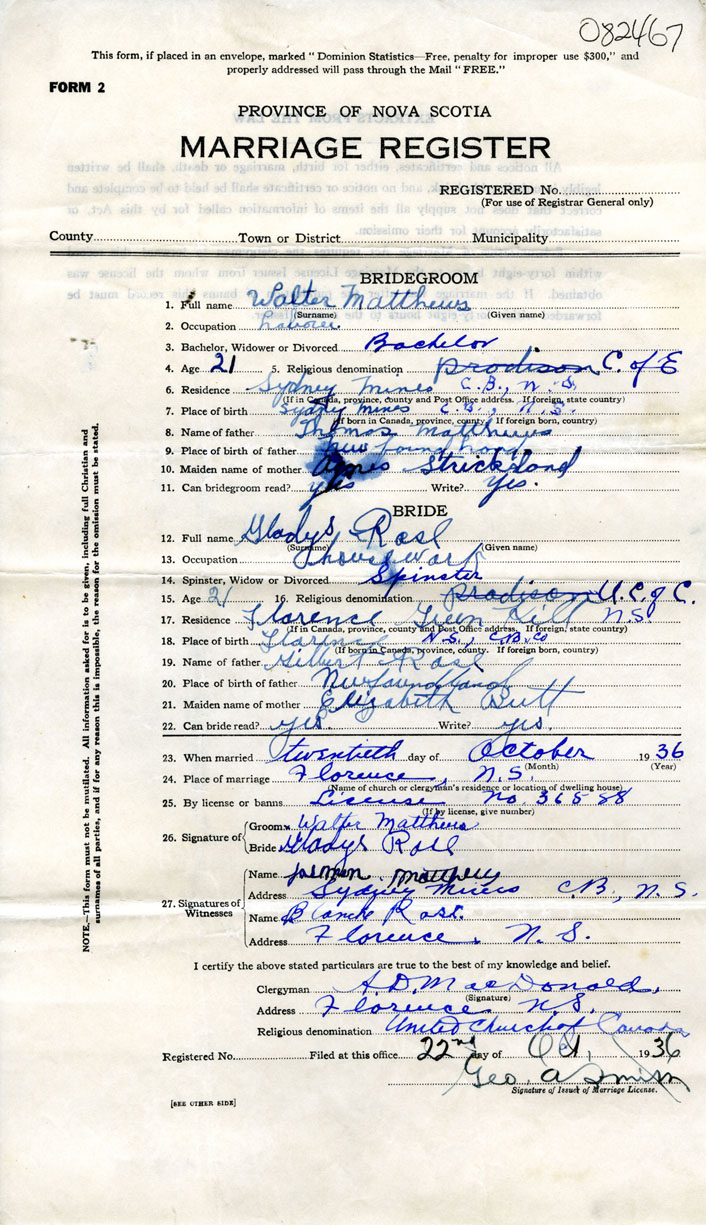 082467
This form, if placed in an envelope, marked "Dominion Statistics—Free, penalty for improper use $300," and
properly addressed will pass through the Mail "FREE."
FORM 2
PROVINCE OF NOVA SCOTIA
MARRIAGE REGISTER
REGISTERED No.
(For use of Registrar General only)
County Town or District Municipality
BRIDEGROOM
1. Full name Walter Matthews
(Surname) (Given name)
2. Occupation Laborer
3. Bachelor, Widower or Divorced Bachelor
4. Age 21 5. Religious denomination prodison C. of E
6. Residence Sydney Mines C.B., N.S.
(If in Canada, province, county and Post Office address. If foreign, state country)
7. Place of birth Sydney Mines C.B., N.S.
(If born in Canada, province, county. If foreign born, country)
8. Name of father Thomas Matthews
9. Place of birth of father
10. Maiden name of mother Agnes Strickland
11. Can bridegroom read? yes Write? Yes.
BRIDE
12. Full name Gladys Rose
(Surname) (Given name)
13. Occupation housework
14. Spinster, Widow or Divorced Spinster
15. Age 21 16. Religious denomination prodison U.C. of C.
17. Residence Florence Green Hill N.S.
(If in Canada, province, county and Post Office address. If foreign, state country)
18. Place of birth Florence N.S., C.B. Co
(If born in Canada, province, county. If foreign born, country)
19. Name of father Gilbert Rose
20. Place of birth of father Newfoundland
21. Maiden name of mother Elizabeth Butt
22. Can bride read? yes. Write? yes.
23. When married twentieth day of October 1936
(Month) (Year)
24. Place of marriage Florence, N.S.
(Name of church or clergyman's residence or location of dwelling house)
25. By license or banns License No. 36588
(If by license, give number)
26. Signature of
Groom Walter Matthews
Bride Gladys Rose
27. Signatures of Witnesses
Name Matthews
Address Sydney Mines C.B., N.S.
Name Blanche Rose.
Address Florence, N.S.
I certify the above stated particulars are true to the best of my knowledge and belief.
Clergyman A.D. MacDonald,
(Signature)
Address Florence N.S.
Religious denomination United Church of Canada
Registered No. Filed at this office 22nd day of Oct, 1936
Geo. A
Signature of Issuer of Marriage License.
[SEE OTHER SIDE]
NOTE.—This form must not be mutilated. All information asked for is to be given, including full Christian and
surnames of all parties, and if for any reason this is impossible, the reason for the omission must be stated.